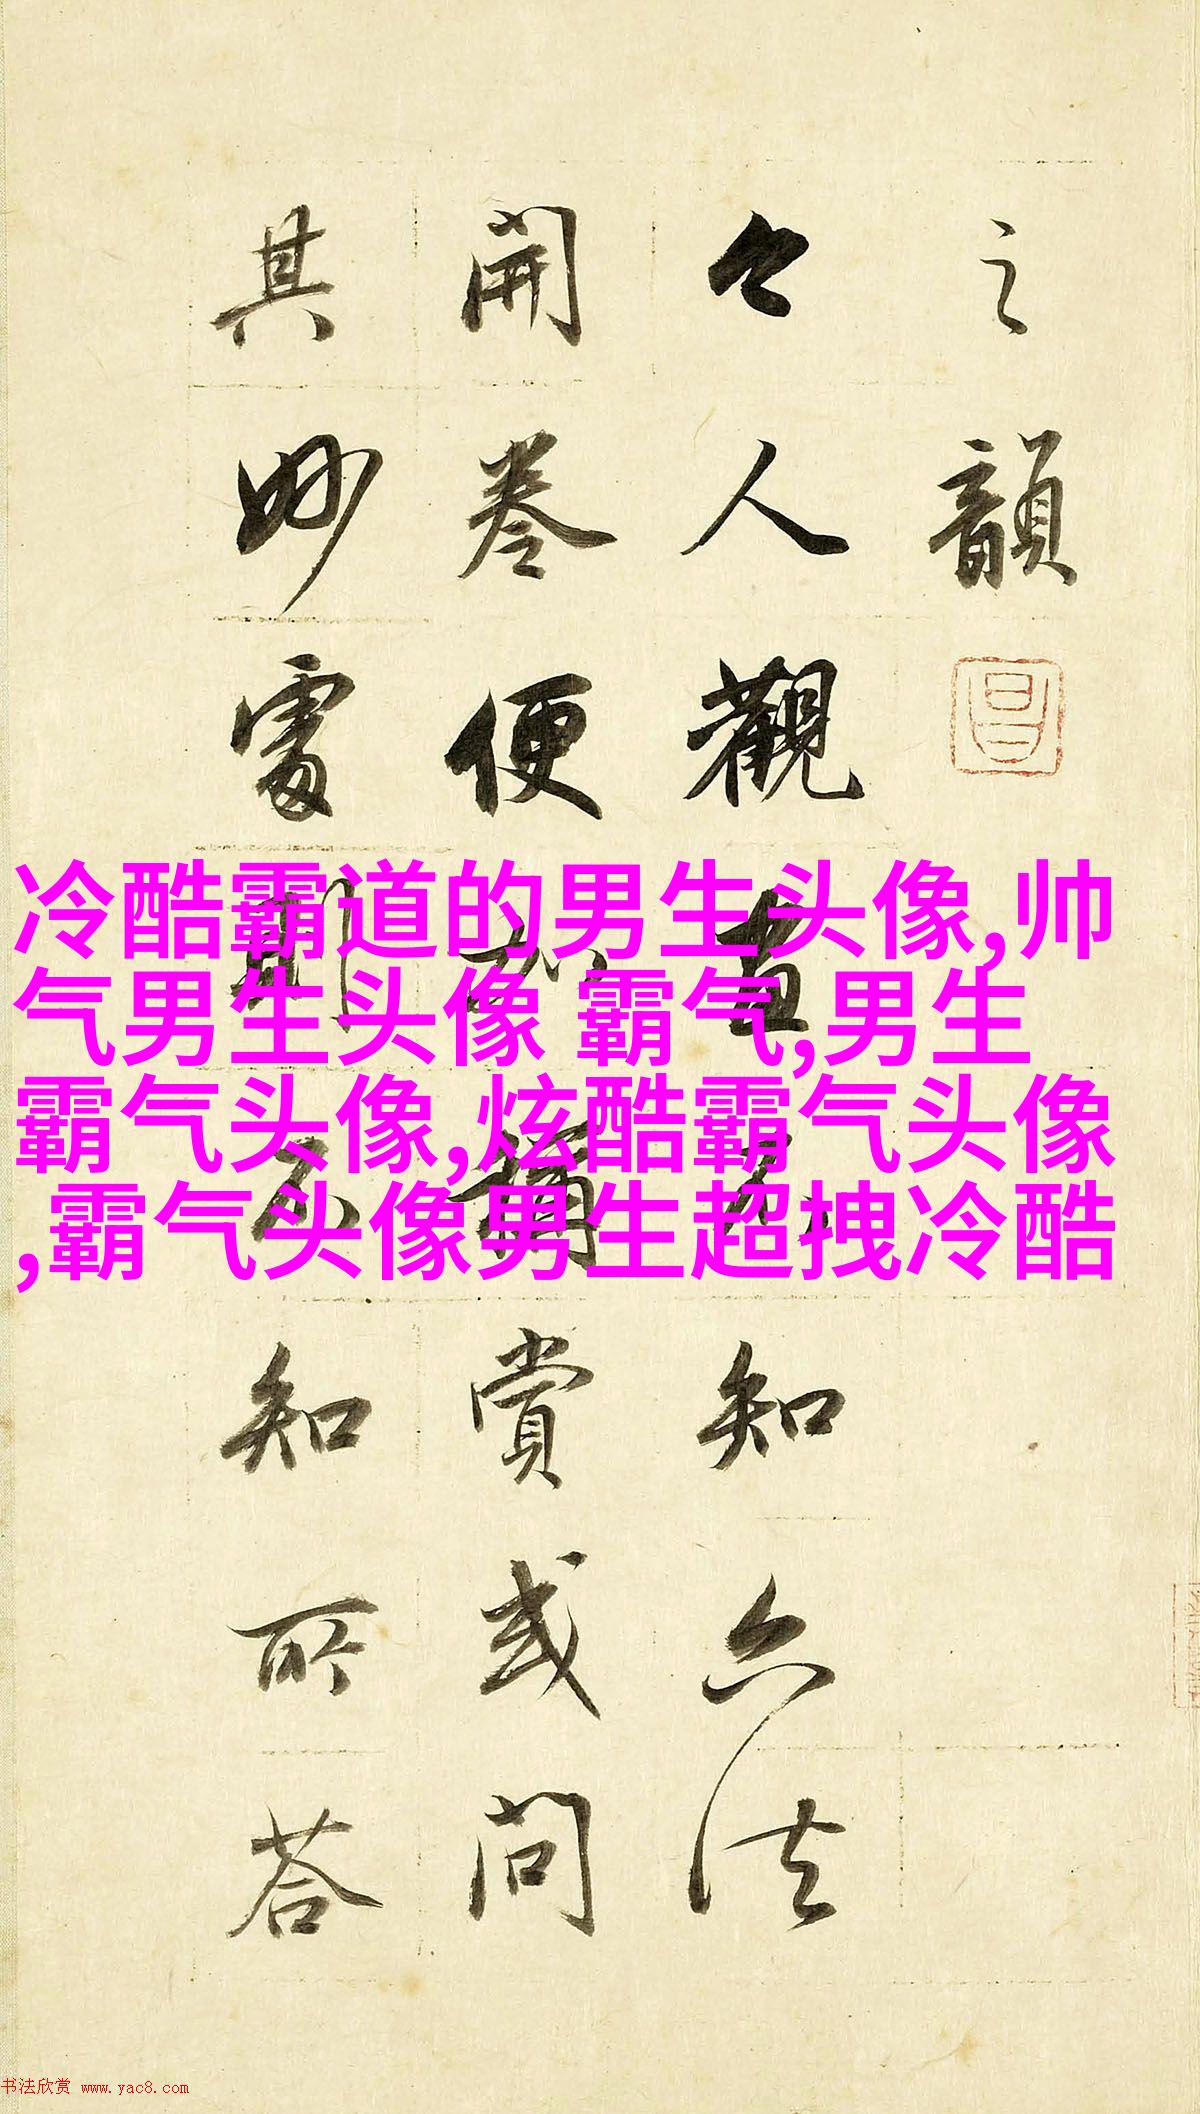 之韻
今人觀畫不知六法
開卷便加稱賞或問
其妙處則不知所荅
冷酷霸道的男生头像,帅
气男生头像 霸气,男生
霸气头像,炫酷霸气头像
,霸气头像男生超拽冷酷
书法欣赏 www.yac8.com